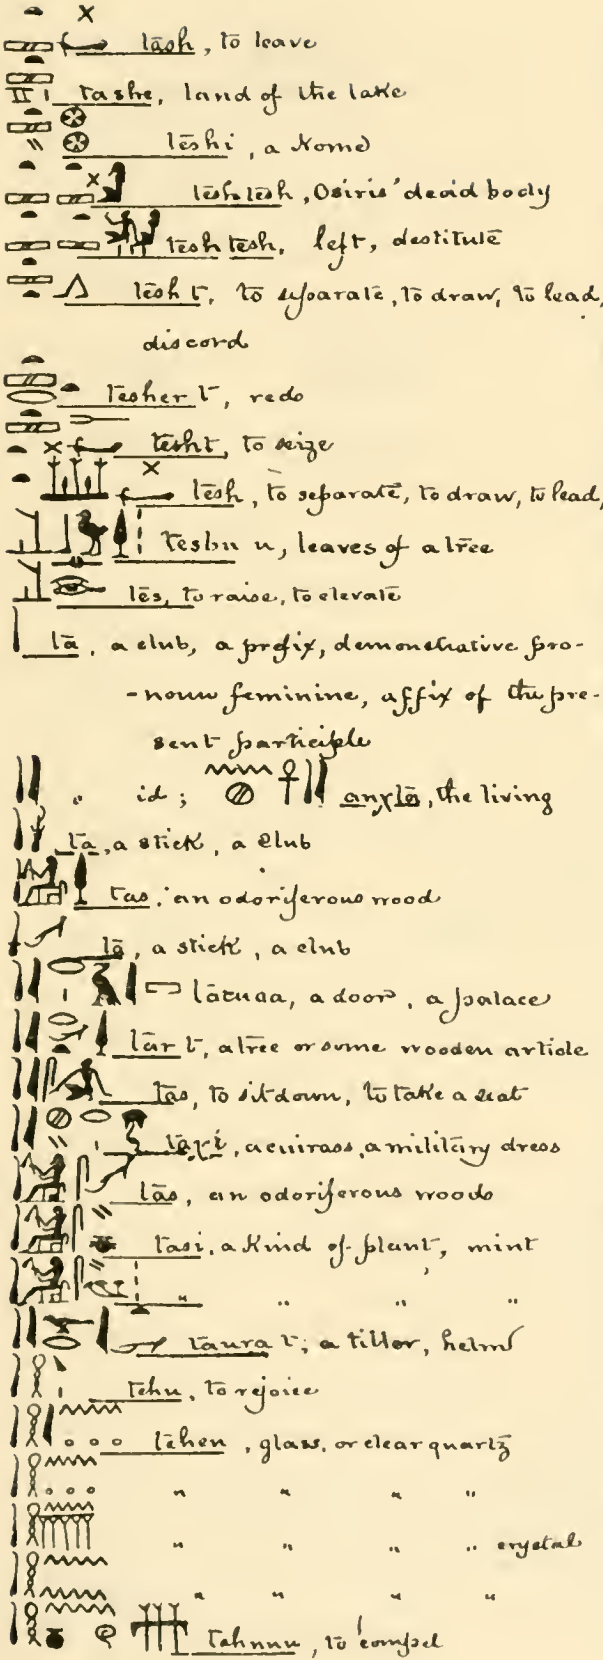 tāsh, to leave
tashe, land of the lake
tēshi, a Nome
tēshtēsh, Osiris' dead body
tēshtēsh, left, destitute
tēsh t, to separate, to draw, to lead,
discord
tesher t, red
tēsht, to seize
tēsh, to separate, to draw, to lead,
u, leaves of a tree
tēs, to raise, to elevate
tā, a club, a prefix, demonstrative pro-
-noun feminine, affix of the pre-
sent participle
" id; anχtā, the living
ta, a stick, a club
tas, an odoriferous wood
tā, a stick, a club
a door, a palace
tār t, a tree or some wooden article
tās, to sit down, to take a seat
taχi, a cuirass, a military dress
tās, an odoriferous wood
tasi, a kind of plant, mint
" " " "
taura t; a tiller, helm
tehu, to rejoice
tehen, glass, or clear quartz
" " " "
" " " " crystal
" " " "
tahnnu, to compel